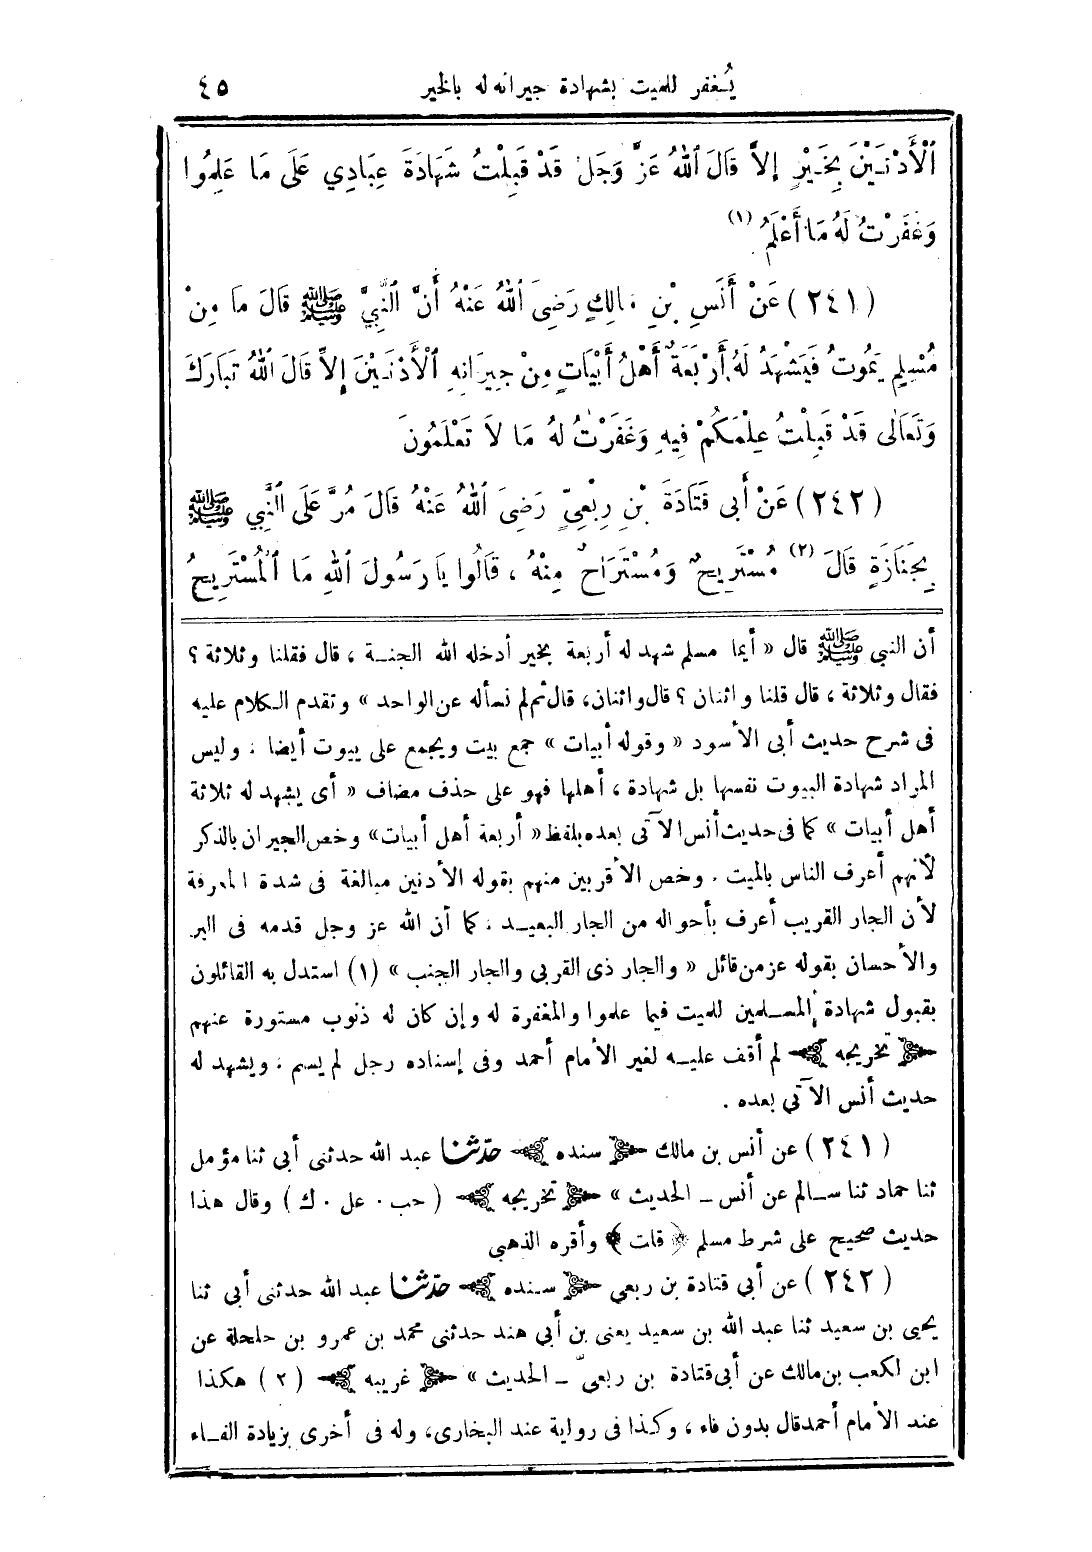 يُغفر للميت بشهادة جيرانه له بالخير ٤٥
ٱلْأَدْنَيْنَ بِخَيْرٍ إِلاَّ قَالَ ٱللهُ عَزَّ وَجَلَّ قَدْ قَبِلْتُ شَهَادَةَ عِبَادِي عَلَى مَا عَلِمُوا
وَغَفَرْتُ لَهُ مَا أَعْلَمُ (١)
(٢٤١) عَنْ أَنَسِ بْنِ مَالِكٍ رَضِىَ ٱللهُ عَنْهُ أَنَّ ٱلنَّبِيَّ ﷺ قَالَ مَا مِنْ
مُسْلِمٍ يَمُوتُ فَيَشْهَدُ لَهُ أَرْبَعَةُ أَهْلُ أَبْيَاتٍ مِنْ جِيرَانِهِ ٱلْأَدْنَيْنَ إِلاَّ قَالَ ٱللهُ تَبَارَكَ
وَتَعَالَى قَدْ قَبِلْتُ عِلْمَكُمْ فِيهِ وَغَفَرْتُ لَهُ مَا لاَ تَعْلَمُونَ
(٢٤٢) عَنْ أَبِى قَتَادَةَ بْنِ رِبْعِىٍّ رَضِىَ ٱللهُ عَنْهُ قَالَ مُرَّ عَلَى ٱلنَّبِي ﷺ
بِجَنَازَةٍ قَالَ (٢) مُسْتَرِيحٌ وَمُسْتَرَاحٌ مِنْهُ ، قَالُوا يَا رَسُولَ ٱللهِ مَا ٱلْمُسْتَرِيحُ
أن النبي ﷺ قال « أيما مسلم شهد له أربعة بخير أدخله الله الجنـة ، قال فقلنا وثلاثة ؟
فقال وثلاثة ، قال قلنا واثنان ؟ قال واثنان، قال ثم لم نسأله عن الواحد » وتقدم الكلام عليه
فى شرح حديث أبى الأسود « وقوله أبيات » جمع بيت ويجمع على بيوت أيضا ، وليس
المراد شهادة البيوت نفسها بل شهادة ، أهلها فهو على حذف مضاف « أى يشهد له ثلاثة
أهل أبيات » كما فى حديث أنس الآتى بعده بلفظ « أربعة أهل أبيات» وخص الجيران بالذكر
لأنهم أعرف الناس بالميت ، وخص الأقربين منهم بقوله الأدنين مبالغة فى شدة المعرفة
لأن الجار القريب أعرف بأحواله من الجار البعيـد ، كما أن الله عز وجل قدمه فى البر
والأحسان بقوله عز من قائل « والجار ذى القربى والجار الجنب » (١) استدل به القائلون
بقبول شهادة المسـلمين للميت فيما علموا والمغفرة له وإن كان له ذنوب مستورة عنهم
تخريجه لم أقف عليـه لغير الأمام أحمد وفى إسناده رجل لم يسم ، ويشهد له
حديث أنس الآتي بعده .
(٢٤١) عن أنس بن مالك سنده حدّثنا عبد الله حدثنى أبي ثنا مؤمل
ثنا حماد ثنا سـالم عن أنس ـ الحديث » تخريجه ( حب . عل . ك ) وقال هذا
حديث صحيح على شرط مسلم ( قلت ) وأقره الذهبي
(٢٤٢) عن أبي قتادة بن ربعي سـنده حدّثنا عبد الله حدثنى أبي ثنا
يحيى بن سعيد ثنا عبد الله بن سعيد يعنى بن أبي هند حدثنى محمد بن عمرو بن حلحلة عن
ابن لكعب بن مالك عن أبى قتادة بن ربعىّ ـ الحديث » غريبه (٢) هكذا
عند الأمام أحمد قال بدون فاء ، وكذا فى رواية عند البخارى، وله فى أخرى بزيادة الفـاء